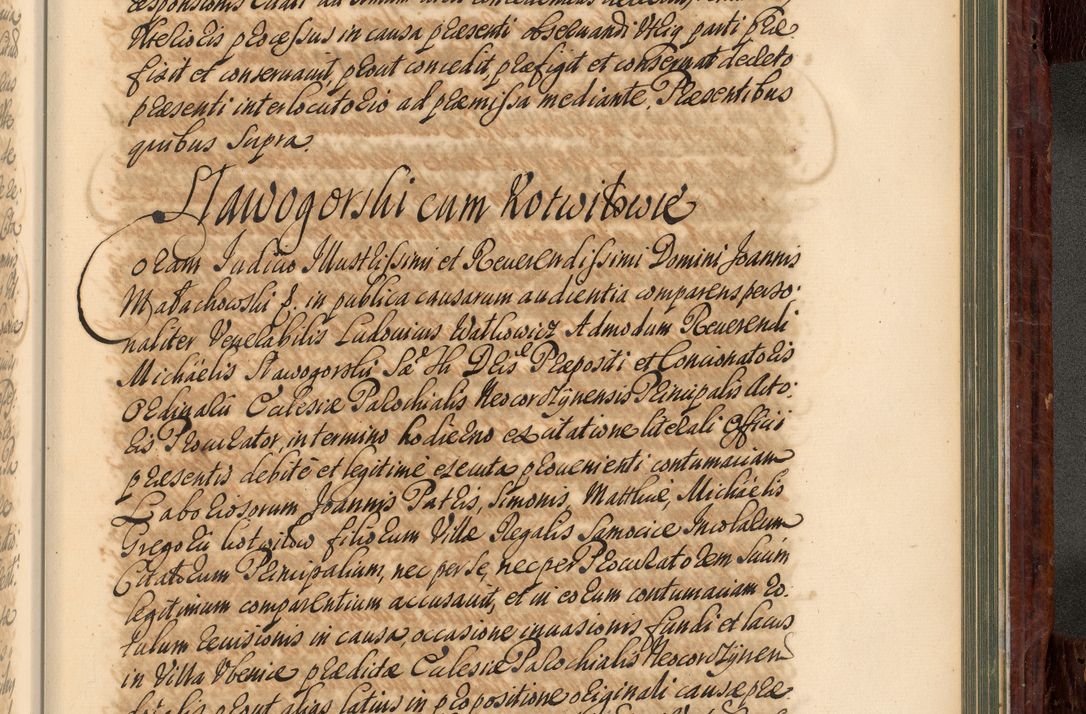 responsionis
Uterioris processus in causa præsenti observandi Utrq parti præ
fixit et conservavit, prout concedit, præfigit et conservat decreto
præsenti interlocutorio ad præmissa mediante. Præsentibus
quibus supra.
Nawogorski cum Kotwitowie
Coram Judicio Illustrissimi et Reverendissimi Domini Joannis
Małachowski E. in publica causarum audientia comparens perso:
naliter Venerabilis Ludovicus Watkowicz Admodum Reverendi
Michaelis Nawogorski Præpositi et Concionatoris
Ordinarii Ecclesiæ Parochialis Neocorczynensis Principalis Acto:
ris Procurator, in termino hodierno ex citatione literali Officii
præsentis debitè et legitimè executa provenienti contumaciam
Laboriosorum Joannis Patris, Simonis, Matthiæ, Michaelis
Gregorii Kotwitow filiorum Villæ Regalis Samocice Incolarum
Citatorum Principalium, nec per se, nec per Procuratorem suum
legitimum comparentium accusavit, et in eorum contumaciam ro:
tulum revisionis in causa, occasione invasionis fundi et lacus
in Villa Ubenie prædictæ Ecclesiæ Parochialis Neocorczynen
prout alias latius in propositione originali causæ præ